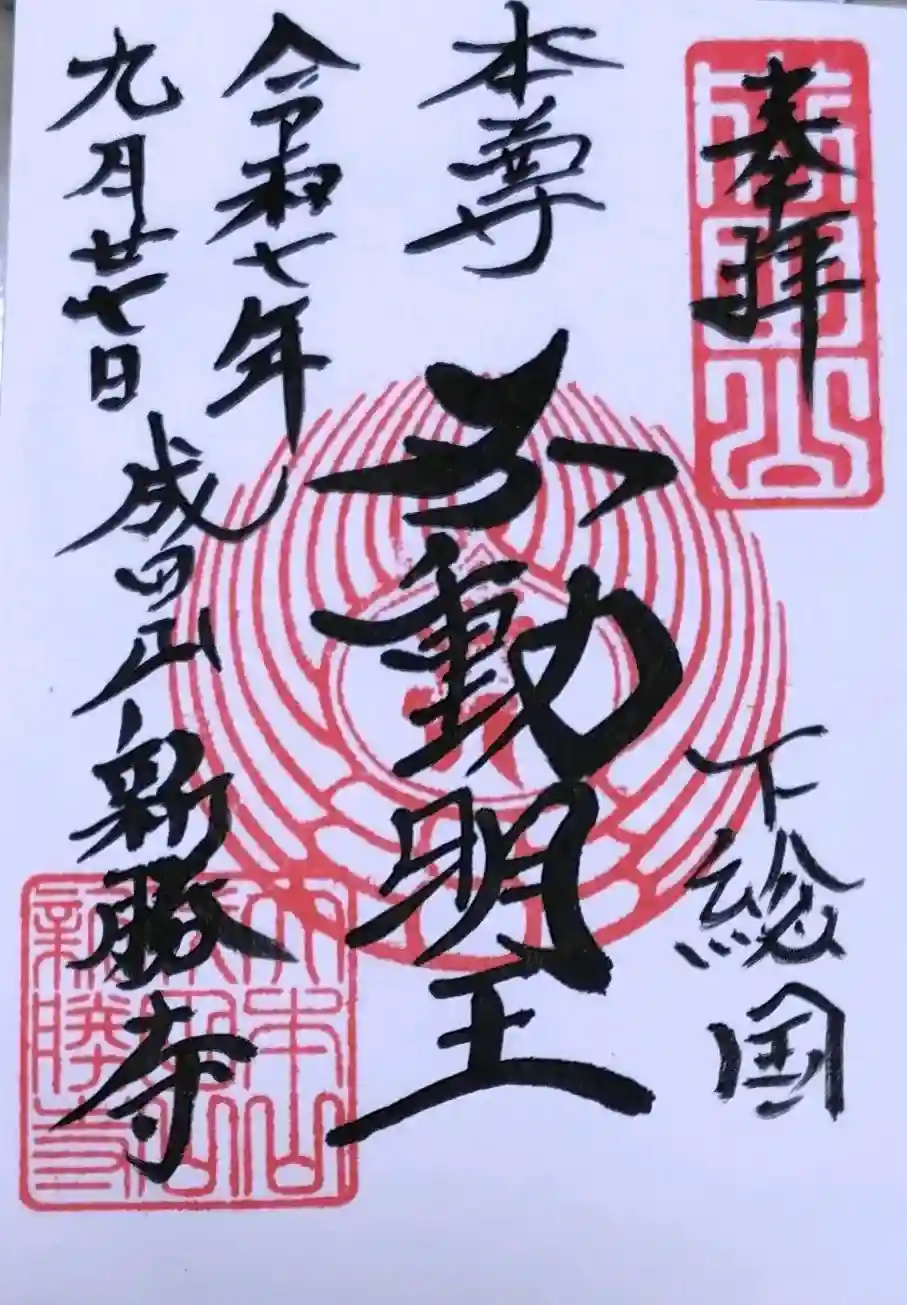 奉拝
下総国
本尊
不動明王
令和七年
九月廿七日
成田山新勝寺
大本山
成田山
新勝寺